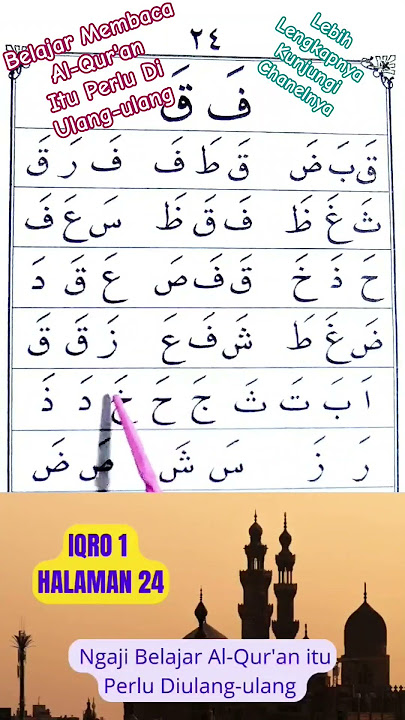 Belajar Membaca
Al-Qur'an
Itu Perlu Di
Ulang-ulang
٢٤
Lebih
Lengkapnya
Kunjungi
Chanelnya
فَ قَ
قَ بَ ضَ قَ طَ فَ فَ رَ قَ
ثَ غَ ظَ فَ قَ ظَ سَ عَ فَ
حَ ذَ خَ قَ فَ صَ عَ قَ دَ
ضَ غَ طَ شَ فَ عَ زَ قَ قَ
اَ بَ تَ ثَ جَ حَ خَ دَ ذَ
رَ زَ سَ شَ صَ ضَ
IQRO 1
HALAMAN 24
Ngaji Belajar Al-Qur'an itu
Perlu Diulang-ulang